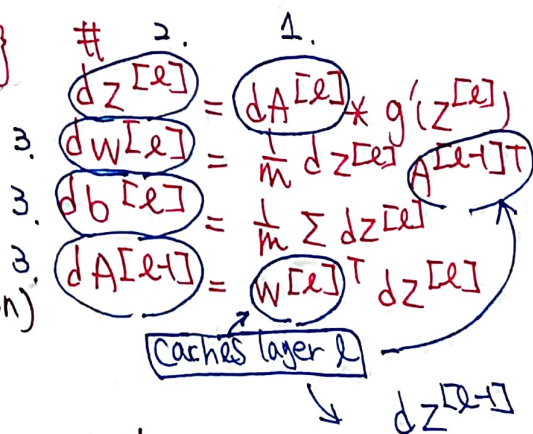 } # 2. 1.
dz[l] = dA[l] * g'(z[l])
3. dw[l] = 1/m dz[l] A[l-1]T
3. db[l] = 1/m Σ dz[l]
3. dA[l-1] = w[l]T dz[l]
n)
caches layer l
dz[l-1]